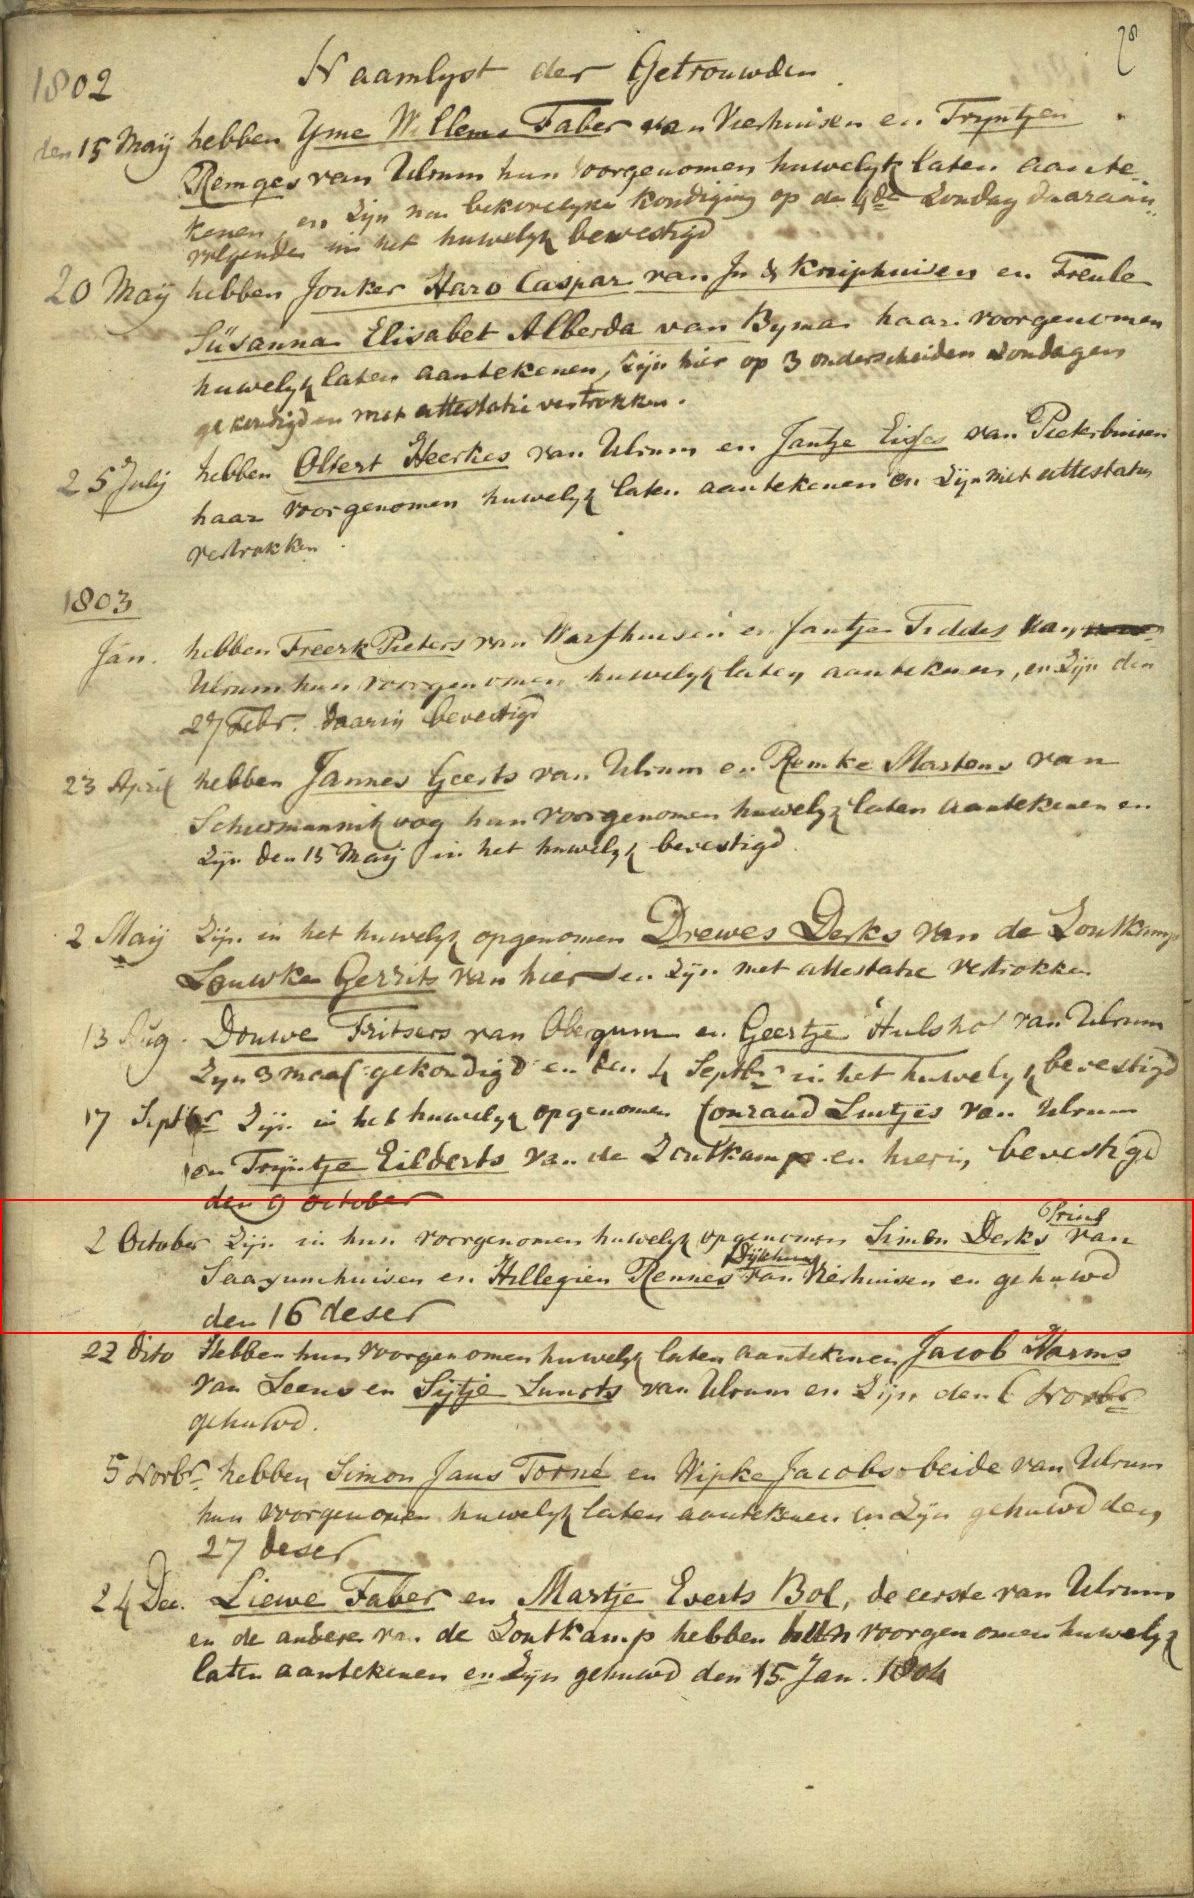 78
1802
Naamlyst der Getrouwden
den 15 Maÿ hebben Yme Willems Faber van Vierhuisen en Tryntjen
Remges van Ulrum hun voorgenomen huwelyk laten aante-
kenen, en Zijn na bekorelyke kondiging op de 4de Zondag daaraan
volgende in het huwelyk bevestigd
20 Maÿ hebben Jonker Haro Caspar van In & Kniphuisen en Freule
Süsanna Elisabet Alberda van Byma haar voorgenomen
huwelyk laten aantekenen, Zijn hier op 3 onderscheiden Zondagen
gekondigd en met attestatie vertrokken.
25 July hebben Oltert Heerkes van Ulrum en Jantje Eisses van Pieterbuiren
haar voorgenomen huwelyk laten aantekenen en Zijn met attestatie
vertrokken.
1803
Jan. hebben Freerk Pieters van Warfhuisen en Jantjen Feddes van
Ulrum hun voorgenomen huwelyk laten aantekenen, en Zijn den
27 Febr. daarin bevestigd
23 April hebben Jannes Geerts van Ulrum en Remke Martens van
Schiermonnikoog hun voorgenomen huwelyk laten aantekenen en
Zijn den 15 Maÿ in het huwelyk bevestigd.
2 Maÿ Zijn in het huwelyk opgenomen Drewes Derks van de Zoutkamp
Louwke Gerrits van hier en Zijn met attestatie vertrokken
13 Aug. Douwe Fritsers van Obergum en Geertje Hulshof van Ulrum
Zijn 3 maal gekondigd en den 4 Septbr in het huwelyk bevestigd
17 Septbr Zijn in het huwelyk opgenomen Conraad Luitjes van Ulrum
en Tryntje Eilderts van de Zoutkamp en hierin bevestigd
den 9 october
2 October Zijn in hun voorgenomen huwelyk opgenomen Simon Derks Prins van
Saaxumhuisen en Hillegien Rennes Dijkhuis van Vierhuisen en gehuwd
den 16 deser
22 dito Hebben hun voorgenomen huwelyk laten aantekenen Jacob Harms
van Leens en Sijtje Luurts van Ulrum en Zijn den 6 Novbr
gehuwd.
5 Novbr hebben Simon Jans Torné en Wipke Jacobs beide van Ulrum
hun voorgenomen huwelyk laten aantekenen en Zijn gehuwd den
27 deser
24 Dec. Liewe Faber en Martje Everts Bol, de eerste van Ulrum
en de andere van de Zoutkamp hebben hun voorgenomen huwelyk
laten aantekenen en Zijn gehuwd den 15 Jan. 1804